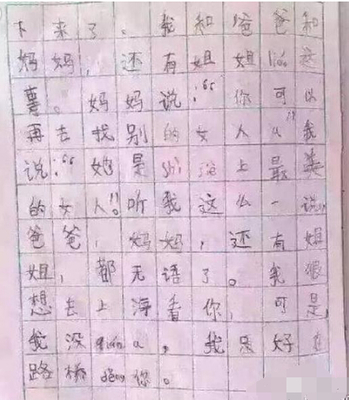 下来了。我和爸爸和
妈妈，还有姐姐liáo这
薯。妈妈说：“你可以
再去找别的女人”！我
说：“她是shì jiè上最美
的女人”！听我这么一说
爸爸，妈妈，还有姐
姐，都无语了。我很
想去上海看你，可是
我没qián a，我只好在
路桥děng你。